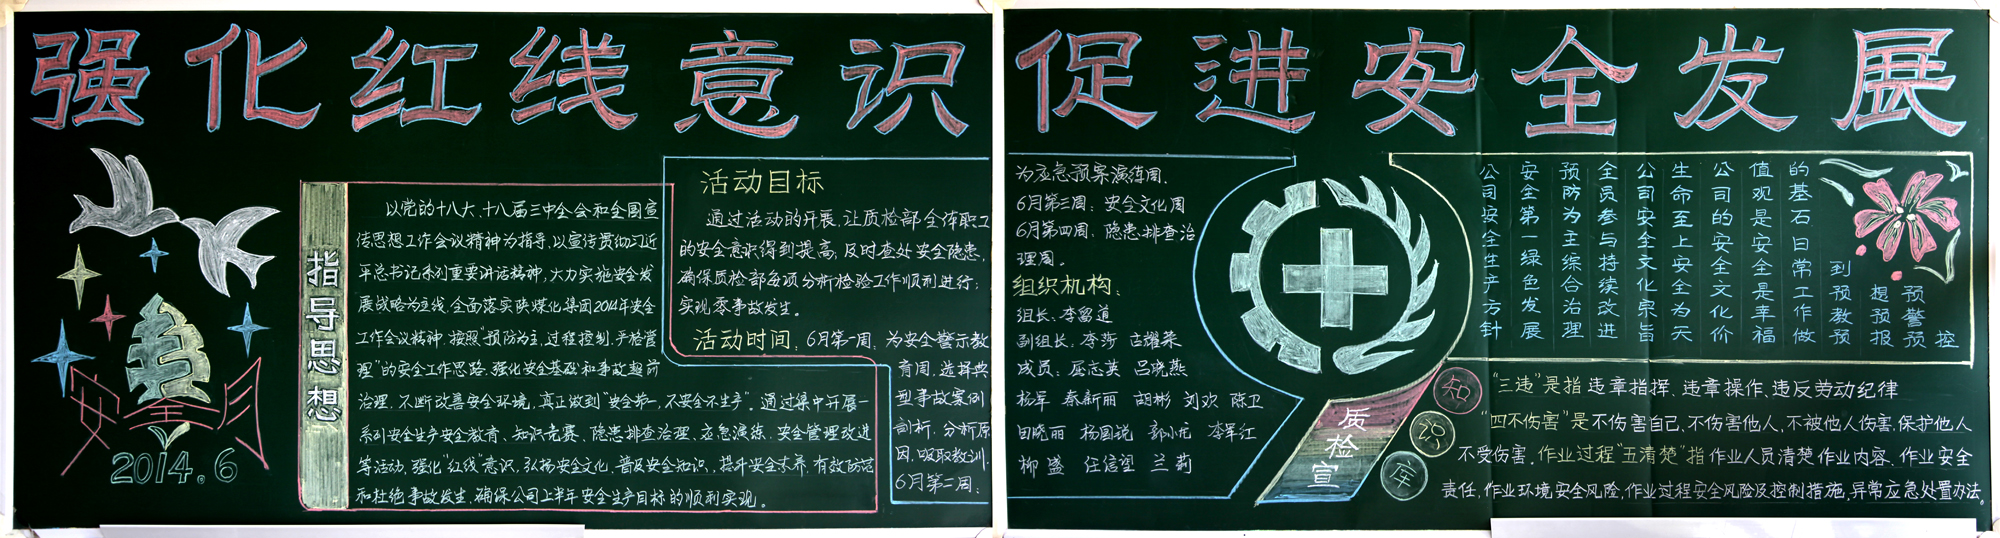 强化红线意识 促进安全发展
安全月
2014.6
指导思想
以党的十八大、十八届三中全会和全国宣
传思想工作会议精神为指导，以宣传贯彻习近
平总书记系列重要讲话精神，大力实施安全发
展战略为主线，全面落实陕煤化集团2014年安全
工作会议精神，按照“预防为主，过程控制，严格管
理”的安全工作思路，强化安全基础和事故超前
治理，不断改善安全环境，真正做到“安全第一，不安全不生产”。通过集中开展一
系列安全生产安全教育、知识竞赛、隐患排查治理、应急演练、安全管理改进
等活动，强化“红线”意识，弘扬安全文化，普及安全知识，提升安全素养，有效防范
和杜绝事故发生，确保公司上半年安全生产目标的顺利实现。
活动目标
通过活动的开展，让质检部全体职工
的安全意识得到提高；及时查处安全隐患，
确保质检部各项分析检验工作顺利进行；
实现零事故发生。
活动时间：6月第一周：为安全警示教
育周，选择典
型事故案例
剖析，分析原
因，吸取教训。
6月第二周：
为应急预案演练周。
6月第三周：安全文化周
6月第四周：隐患排查治
理周。
组织机构：
组长：李留道
副组长：李莎 古耀荣
成员：屈志英 吕晓燕
杨军 秦新丽 胡彬 刘欢 陈卫
田晓丽 杨国锐 郭小龙 李军红
柳盛 任信望 兰莉
质检宣
公司安全生产方针
安全第一绿色发展
预防为主综合治理
全员参与持续改进
公司安全文化宗旨
生命至上安全为天
公司的安全文化价
值观是安全是幸福
的基石日常工作做
到预教预
想预报
预警预
控
知识库
“三违”是指违章指挥、违章操作、违反劳动纪律
“四不伤害”是不伤害自己，不伤害他人，不被他人伤害，保护他人
不受伤害。作业过程“五清楚”指作业人员清楚作业内容、作业安全
责任，作业环境安全风险，作业过程安全风险及控制措施，异常应急处置办法。